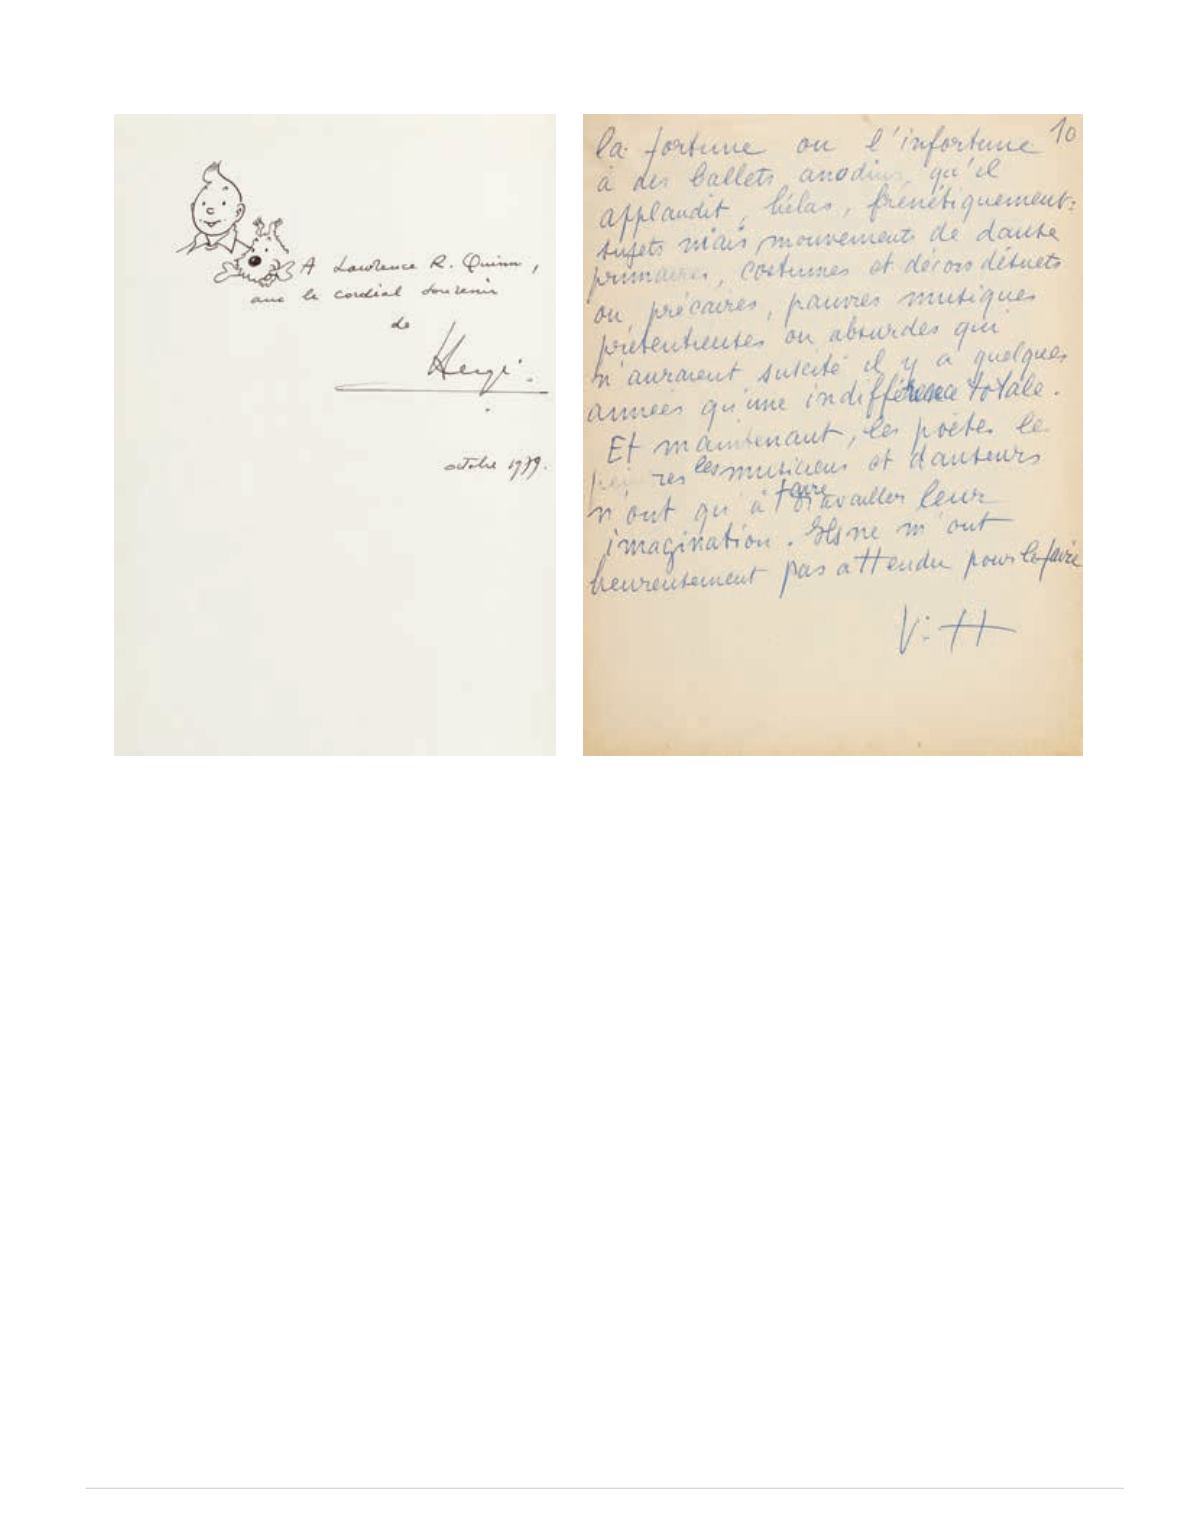 A Lawrence R. Quinn,
avec le cordial souvenir
de
Hergé.
octobre 1979.
10
la fortune ou l'infortune
à des ballets anodins, qu'il
applaudit, hélas, frénétiquement:
sujets niais, mouvements de danse
primaires, costumes et décors désuets
ou précaires, pauvres musiques
prétentieuses ou absurdes qui
n'auraient suscité il y a quelques
années qu'une indifférence totale.
Et maintenant, les poètes le
les musiciens et danseurs
n'ont qu'à faire travailler leur
imagination. Ils ne m'ont
heureusement pas attendu pour le faire